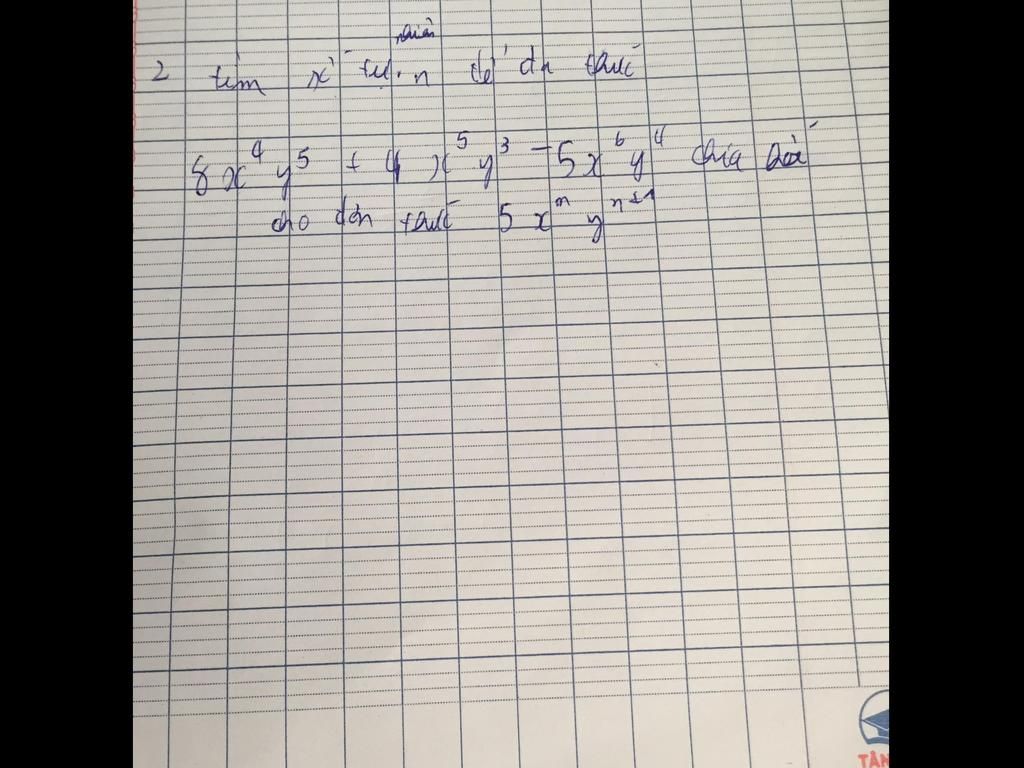 nhiên
2 tìm số tự n để đa thức
8x⁴y⁵ + 4x⁵y³ - 5x⁶y⁴ chia hết
cho đơn thức 5xⁿyⁿ⁺¹
TÂN